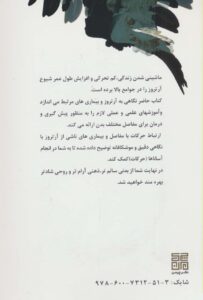 ماشینی شدن زندگی، کم تحرکی و افزایش طول عمر شیوع
آرتروز را در جوامع بالا برده است.
کتاب حاضر نگاهی به آرتروز و بیماری های مرتبط می اندازد
وآموزشهای علمی و عملی لازم را به منظور پیش گیری و
درمان برای مفاصل مختلف بدن ارائه می کند.
ارتباط حرکات با مفاصل و بیماری های ناشی از آرتروز با
نگاهی دقیق و موشکافانه توضیح داده شده تا به شما در انجام
آساناها (حرکات) کمک کند.
در نهایت شما از بدنی سالم تر، ذهنی آرام تر و روحی شادتر
بهره مند خواهید شد.
شابک: ۳-۵۱-۷۳۱۲-۶۰۰-۹۷۸